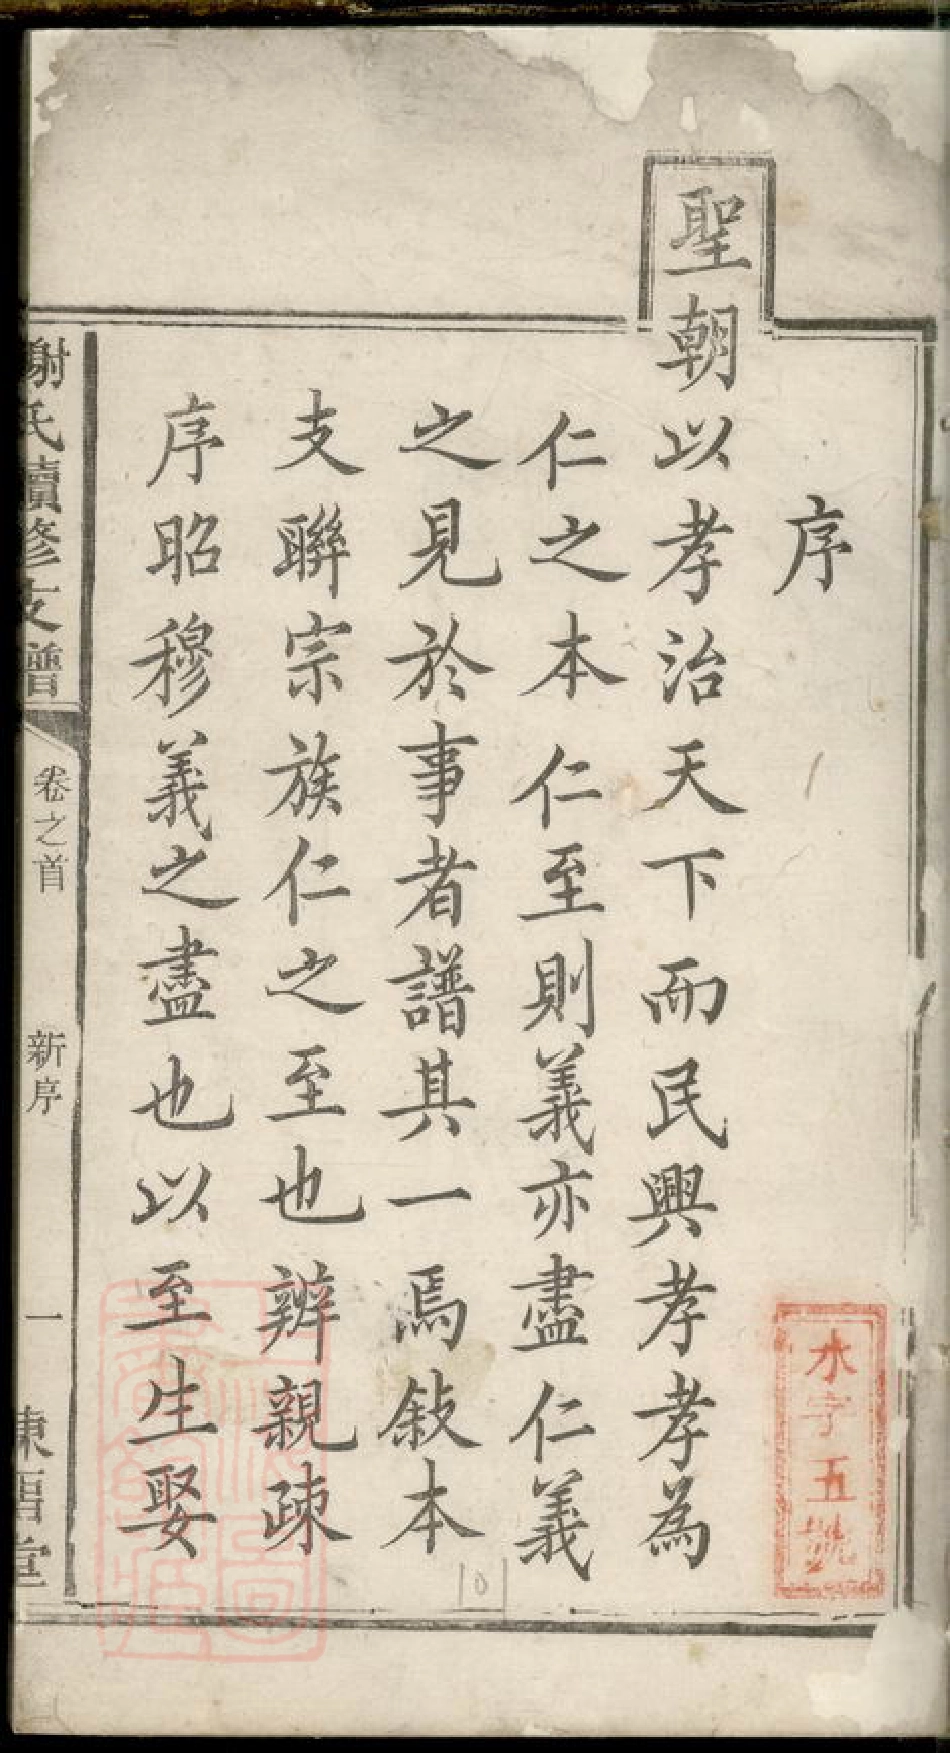 序
聖朝以孝治天下而民興孝孝為
仁之本仁至則義亦盡仁義
之見於事者譜其一焉敍本
支聯宗族仁之至也辨親疎
序昭穆義之盡也以至生娶
謝氏續修支譜
卷之首
新序
一
東晉堂
水字五號
上海圖書館藏
101